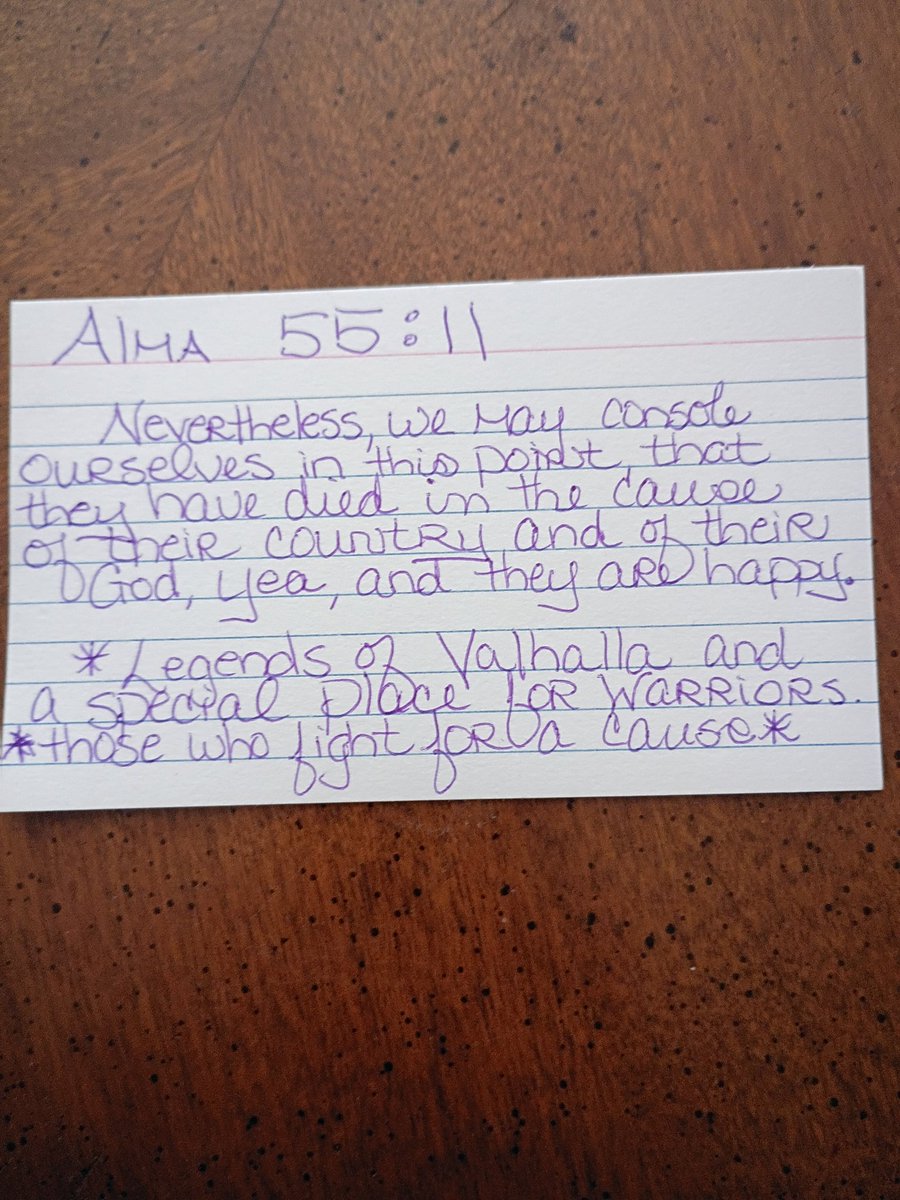 Alma 55:11
Nevertheless, we may console
ourselves in this point, that
they have died in the cause
of their country and of their
God, yea, and they are happy.
* Legends of Valhalla and
a special place for warriors.
*those who fight for a cause*